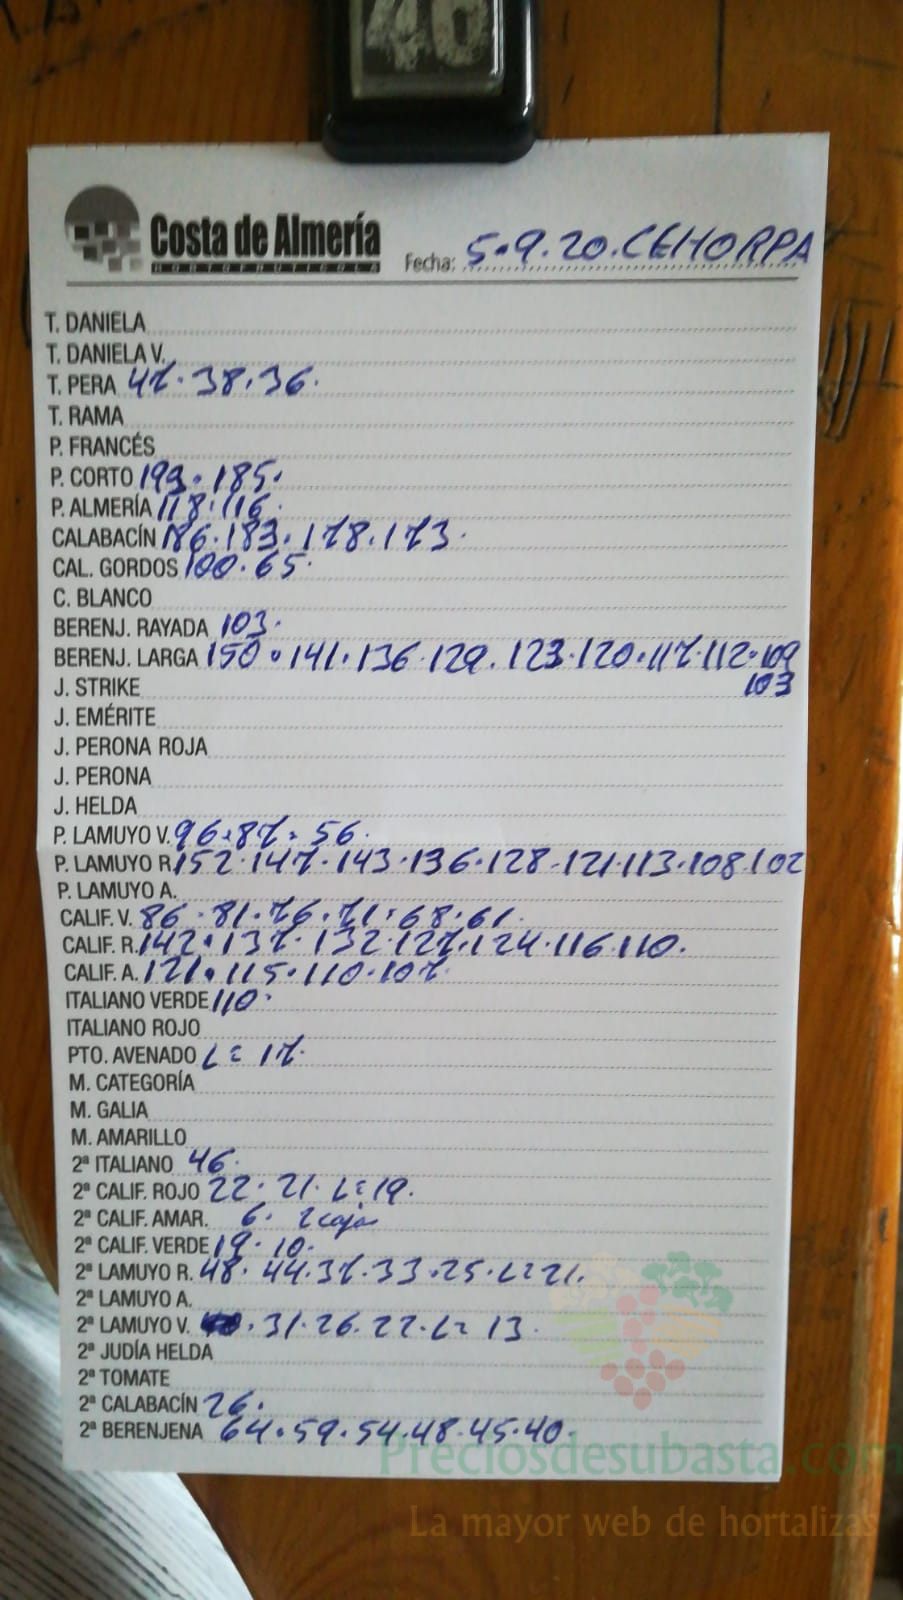 40
Costa de Almería
HORTOFRUTICOLA
Fecha: 5.9.20.CEHORPA
T. DANIELA
T. DANIELA V.
T. PERA 47.38.36.
T. RAMA
P. FRANCÉS
P. CORTO 193.185.
P. ALMERÍA 118.116.
CALABACÍN 186.183.178.173.
CAL. GORDOS 100.65.
C. BLANCO
BERENJ. RAYADA 103.
BERENJ. LARGA 150.141.136.129.123.120.117.112.109
103
J. STRIKE
J. EMÉRITE
J. PERONA ROJA
J. PERONA
J. HELDA
P. LAMUYO V. 96.87.56.
P. LAMUYO R. 152.147.143.136.128.121.113.108.102
P. LAMUYO A.
CALIF. V. 86.81.76.71.68.61.
CALIF. R. 142.137.132.127.124.116.110.
CALIF. A. 121.115.110.107.
ITALIANO VERDE 110.
ITALIANO ROJO
PTO. AVENADO L= 17.
M. CATEGORÍA
M. GALIA
M. AMARILLO
2ª ITALIANO 46.
2ª CALIF. ROJO 22.21.L=19.
2ª CALIF. AMAR. 6.
2ª CALIF. VERDE 19.10.
2ª LAMUYO R. 48.44.37.33.25.L=21.
2ª LAMUYO A.
2ª LAMUYO V. .31.26.22.L=13.
2ª JUDÍA HELDA
2ª TOMATE
2ª CALABACÍN 26.
2ª BERENJENA 64.59.54.48.45.40.
Preciosdesubasta.com
La mayor web de hortalizas